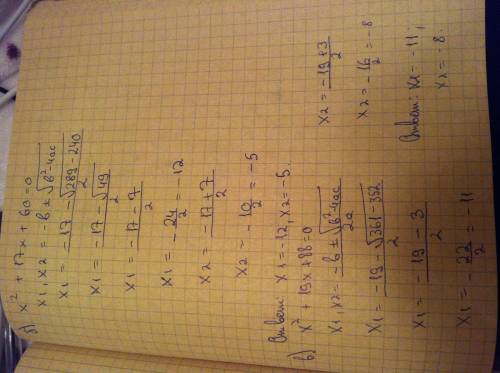 б) x² + 17x + 60 = 0
x1, x2 = -b ± √b²-4ac
x1 = -17 - √289-240 / 2
x1 = -17 - √49 / 2
x1 = -17 - 7 / 2
x1 = - 24/2 = -12
x2 = -17 + 7 / 2
x2 = - 10/2 = -5
Ответ: x1 = -12, x2 = -5.
в) x² + 19x + 88 = 0
x1, x2 = -b ± √b²-4ac / 2a
x1 = -19 - √361-352 / 2
x1 = -19 - 3 / 2
x1 = - 22/2 = -11
x2 = -19 + 3 / 2
x2 = -16/2 = -8
Ответ: x1 = -11;
x2 = -8.